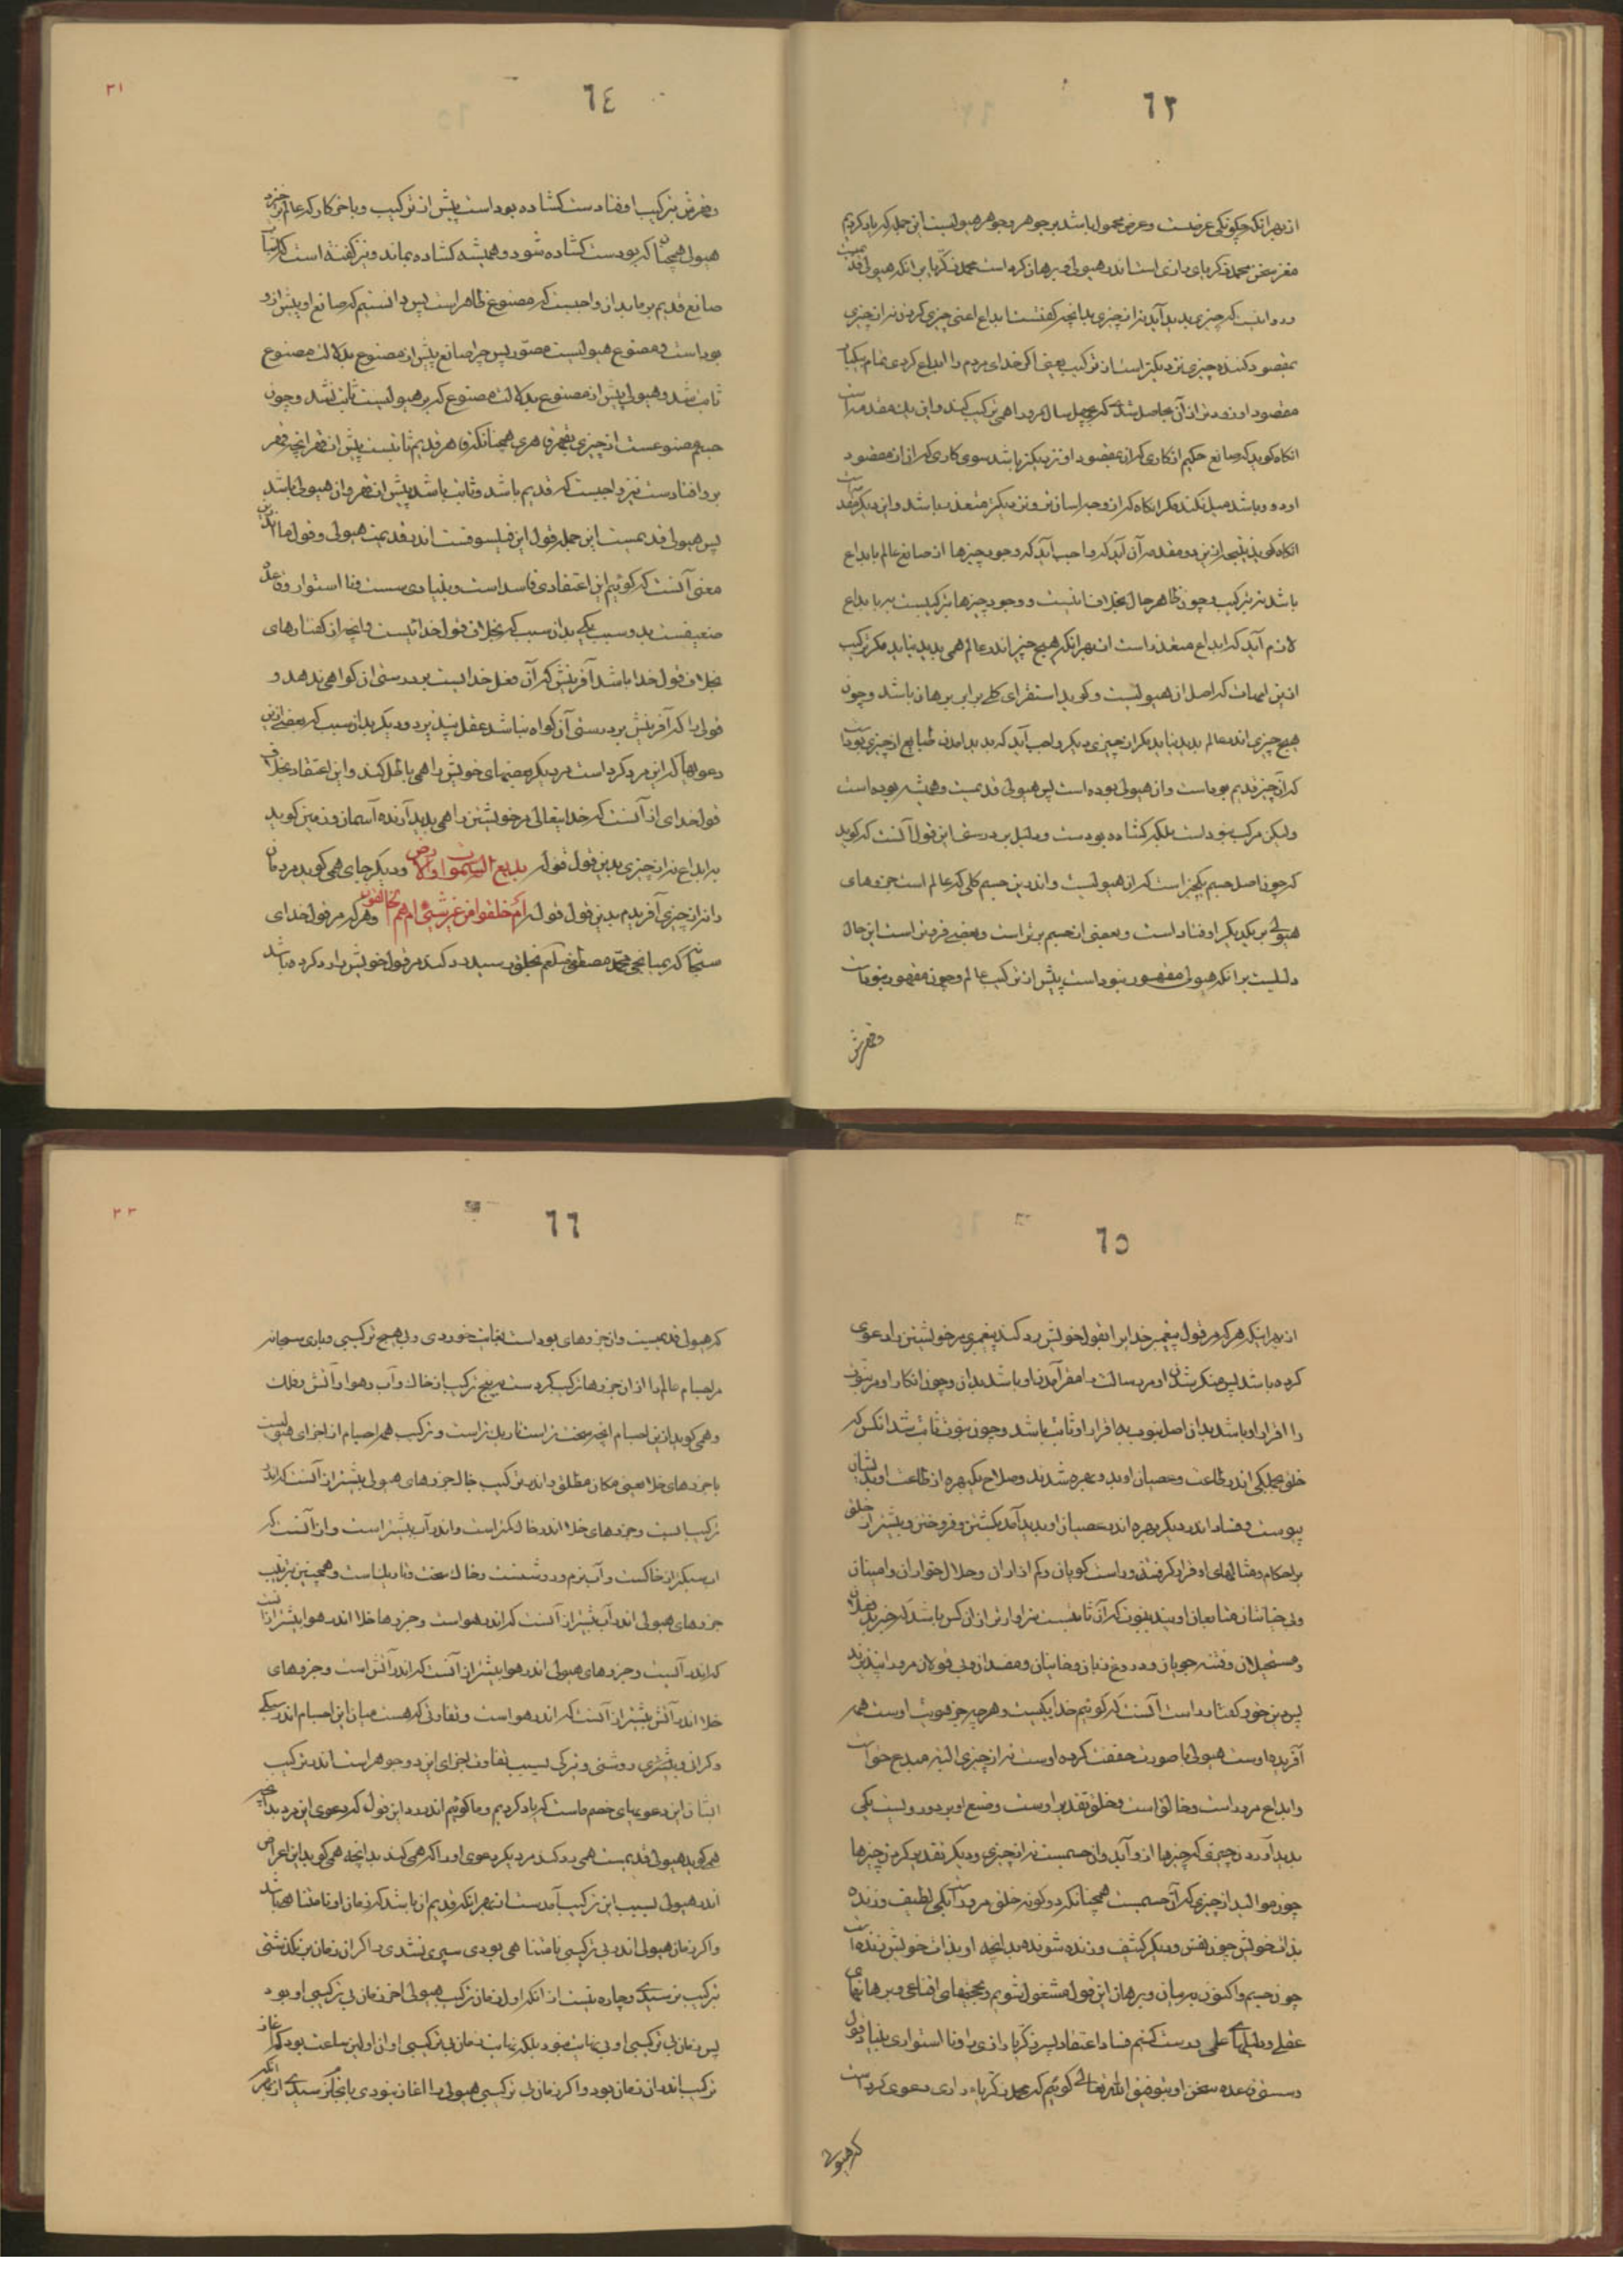 ٦٣
از بهر آنکه چگونگی عرضست و عرض محمول باشد بر جوهر و جوهر هیولیست این جمله که یاد کردیم
مغز سخن محمد زکریای رازی است اندر هیولی و برهان کرده است محمد زکریا بر آنکه هیولی قدیمست
و روا نیست که چیزی پدید آید نه از چیزی بدانچه گفتست ابداع اعنی چیزی کردن نه از چیزی
بمقصود کننده چیزی نزدیکتر است از ترکیب یعنی اگر خدای مردم را ابداع کردی تمام بیکبار
مقصود او زودتر از آن حاصل شدی که بچهل سال مرورا همی ترکیب کند و این یک مقدمه است
آنگاه گوید که صانع حکیم از کاری که آن بمقصود او نزدیکتر باشد سوی کاری که آن از مقصود
او دور باشد میل نکند مگر آنگاه کز آن وجه آسانتر و نزدیکتر متعذر باشد و این دیگر مقدمه است
آنگاه گوید نتیجه از این دو مقدمه آن آید که واجب آید که وجود چیزها از صانع عالم بابداع
باشد نه بترکیب و چون ظاهر حال بخلاف اینست و وجود چیزها بترکیبست نه بابداع
لازم آید که ابداع متعذر است از بهر آنکه هیچ چیز اندر عالم همی پدید نیاید مگر بترکیب
ازین امهات که اصل آن هیولیست و گوید استقرای کلی برابر برهان باشد و چون
هیچ چیزی اندر عالم پدید نیاید مگر از چیزی دیگر واجب آید که پدید آمدن طبایع از چیزی بوده است
که آن چیز قدیم بوده است و آن هیولی بوده است پس هیولی قدیمست و همیشه بوده است
ولیکن مرکب نبوده است بلکه گشاده بودست و دلیل بر درستی این قول آنست که گوید
که چون اصل جسم یکچیز است که آن هیولیست و اندرین جسم کلی که عالم است جزوهای
هیولی بر یکدیگر اوفتاده است و بعضی از جسم برتر است و بعضی فروتر است این حال
دلیلست بر آنکه هیولی مقهور نبوده است پیش از ترکیب عالم و چون مقهور نبوده است
و قهرش
٦٤
٣١
و قهرش بترکیب اوفتادست گشاده بوده است پیش از ترکیب و بآخر کار که عالم برخیزد
هیولی همچنان که بودست گشاده شود و همیشه گشاده بماند و نیز گفته است که اثبات
صانع قدیم بر ما بدان واجبست که مصنوع ظاهر است پس دانستیم که صانع او پیش ازو
بوده است و مصنوع هیولیست مصور پس چرا صانع پیش از مصنوع بدلالت مصنوع
ثابت شد و هیولی پیش از مصنوع بدلالت مصنوع که بر هیولیست ثابت نشد و چون
جسم مصنوعست از چیزی بقهر قاهری همچنانکه قاهر قدیم ثابتست پیش از قهر آنچه قهر
برو افتادست نیز واجبست که قدیم باشد و ثابت باشد پیش از قهر و آن هیولی باشد
پس هیولی قدیمست این جمله قول این فیلسوفست اندر قدیمی هیولی و قول ما اندرین
معنی آنست که گوییم این اعتقادی فاسد است و بنیادی سست و نا استوار و قاعده
ضعیفست بدو سبب یکی بدان سبب که بخلاف قول خدایست و آنچه از گفتارهای
بخلاف قول خدا باشد آفرینش که آن فعل خدایست بر درستی آن گواهی ندهد و
قولی را که آفرینش بر درستی آن گواه نباشد عقل نپذیرد و دیگر بدان سبب که بعضی ازین
دعویها که این مرد کرد است مر دیگر بعضهای خویش را همی باطل کند و این اعتقاد بخلاف
قول خدای از آنست که خدایتعالی مر خویشتن را همی پدید آرنده آسمان و زمین گوید
به ابداع نه از چیزی بدین قول قوله بدیع السموات والارض و دیگر جای همی گوید مردمان
را نه از چیزی آفریدم بدین قول قوله أم خلقوا من غیر شئ أم هم الخالقون و هر که مر قول خدای
سبحانه که بمیانجی محمد مصطفی صلعم بخلق رسید رد کند مر قول خویش را رد کرده باشد
٦٥
از بهر اینکه هر که مر قول پیغمبر خدا را بقول خویش رد کند پیغمبری مر خویشتن را دعوی
کرده باشد پس منکر شدن او مر رسالت را مقر آمدن او باشد بدان و چون انکار او مر نبوت
را اقرار او باشد بدان اصل نبوت به اقرار او ثابت باشد و چون نبوت ثابت شد آنکس که
خلق بجملگی اندر طاعت و عصیان او بدو بهره شدند و صلاح یک بهره از طاعت او بدیشان
پیوست و فساد اندر دیگر بهره اندر عصیان او پدید آمد بکشتن و فروختن و بیشتر از خلق
بر احکام و مثالهای او قرار گرفتند و راست گویان و کم آزاران و حلال خواران و امینان
و بی خیانتان متابعان اویند بنبوت که آن ثابتست سزاوارتر از آن کس باشد که خبر بدخلان
و مستحیلان و فتنه جویان و دروغ زنان و خاینان و مفسدان و بی قولان مرورا نپذیرند
پس درین خود گفتار راست آنست که گوییم خدا یکیست و هر چه جز هویت اوست همه
آفریده اوست هیولی با صورت جفت کرده اوست نه از چیزی البته مبدع حق است
و ابداع مرو راست و خالق است و خلق تقدیر اوست و صنع او بر دو رویست یکی
پدید آوردن چیزی که چیزها ازو آید و آن جسمست نه از چیزی و دیگر تقدیر کردن چیزها
چون موالید از چیزی که آن جسمست همچنانکه دو گونه خلق مرو راست یکی لطیف و زنده
بذات خویش چون نفس و دیگر کثیف و زنده شونده بدانچه او بذات خویش زنده است
چون جسم و اکنون بر بیان و برهان این قول مشغول شویم و بحجتهای اقناعی و برهانهای
عقلی و دلیلهای علمی درست کنیم فساد اعتقاد پسر زکریا رازی را و نا استواری بنیاد قول
و سستی قاعده سخن او بتوفیق الله تعالی گوییم که محمد زکریاء رازی دعوی کردست
که هیولی
٦٦
٣٣
که هیولی قدیمست و آن جزوهای بوده است بغایت خوردی و بی هیچ ترکیبی و باری سبحانه
مر اجسام عالم را از آن جزوها ترکیب کردست به پنج ترکیب از خاک و آب و هوا و آتش و فلک
و همی گوید ازین اجسام آنچه سخت تر است تاریک تر است و ترکیب همه اجسام از اجزای هیولیست
با جزوهای خلا یعنی مکان مطلق و اندر ترکیب خاک جزوهای هیولی بیشتر از آنست که اندر
ترکیب آبست و جزوهای خلا اندر خاک کمتر است و اندر آب بیشتر است و از آنست که
آب سبکتر از خاکست و آب نرم و روشنست و خاک سخت و تاریک است و همچنین بترتیب
جزوهای هیولی اندر آب بیشتر از آنست که اندر هواست و جزوها خلا اندر هوا بیشتر از آنست
که اندر آبست و جزوهای هیولی اندر هوا بیشتر از آنست که اندر آتش است و جزوهای
خلا اندر آتش بیشتر از آنست که اندر هواست و تفاوتی که هست میان این اجسام اندر سبکی
و گرانی و روشنی و تیرگی بسبب تفاوت اجزای این دو جوهر است اندر ترکیب
ایشان این دعویهای خصم ماست که یاد کردیم و ما گوییم اندر رد این قول که دعوی این مرد بدانچه
همی گوید هیولی قدیمست همی رد کند مر دیگر دعوی او را که همی کند بدانچه همی گوید این اعراض
اندر هیولی بسبب این ترکیب آمدست از بهر آنکه قدیم آن باشد که زمان او نامتناهی باشد
و اگر زمان هیولی اندر بی ترکیبی نامتناهی بودی سپری نشدی و اگر آن زمان برنگذشتی
بترکیب نرسیدی و چاره نیست از آنکه اول زمان ترکیب هیولی آخر زمان بی ترکیبی او بود
پس زمان بی ترکیبی او بی نهایت نبود بلکه نهایت زمان بی ترکیبی او آن اولین ساعت بود که آغاز
ترکیب اندر آن زمان بود و اگر زمان بی ترکیبی هیولی را آغاز نبودی بانجام نرسیدی از بهر آنکه